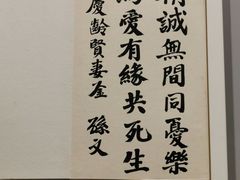 誠無間同憂樂
愛有緣共死生
慶齡賢妻鑒 孫文